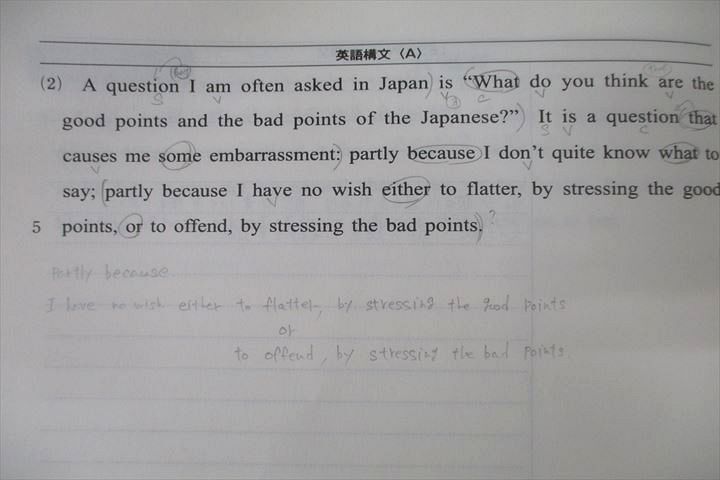 英語構文〈A〉
(2) A question I am often asked in Japan is “What do you think are the
good points and the bad points of the Japanese?” It is a question that
causes me some embarrassment: partly because I don’t quite know what to
say; partly because I have no wish either to flatter, by stressing the good
5 points, or to offend, by stressing the bad points.
Partly because
I have no wish either to flatter, by stressing the good points
or
to offend, by stressing the bad points.